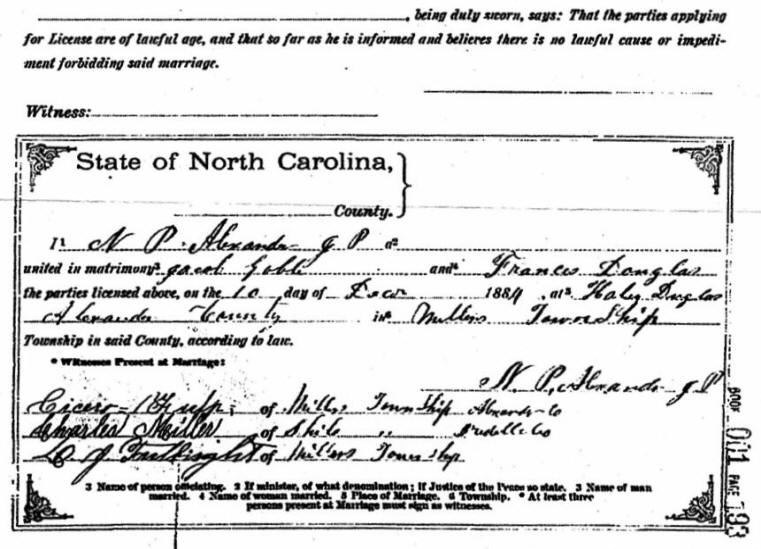 , being duly sworn, says: That the parties applying
for License are of lawful age, and that so far as he is informed and believes there is no lawful cause or impedi-
ment forbidding said marriage.
Witness:
State of North Carolina,
County.
I¹ N P. Alexander J P a²
united in matrimony³ Jacob Goble and⁴ Frances Douglas
the parties licensed above, on the 10 day of Decr 1884, at⁵ Haley Duglas
Alexander County in⁶ Millers TownShip
Township in said County, according to law.
* Witnesses Present at Marriage:
N. P. Alexander J P
Cicero of Millers TownShip Alexander Co
Charles Miller of Shilo " Iredell Co
of Millers TownShip
1 Name of person officiating. 2 If minister, of what denomination; if Justice of the Peace so state. 3 Name of man
married. 4 Name of woman married. 5 Place of Marriage. 6 Township. * At least three
persons present at Marriage must sign as witnesses.
BOOK 001 PAGE 193